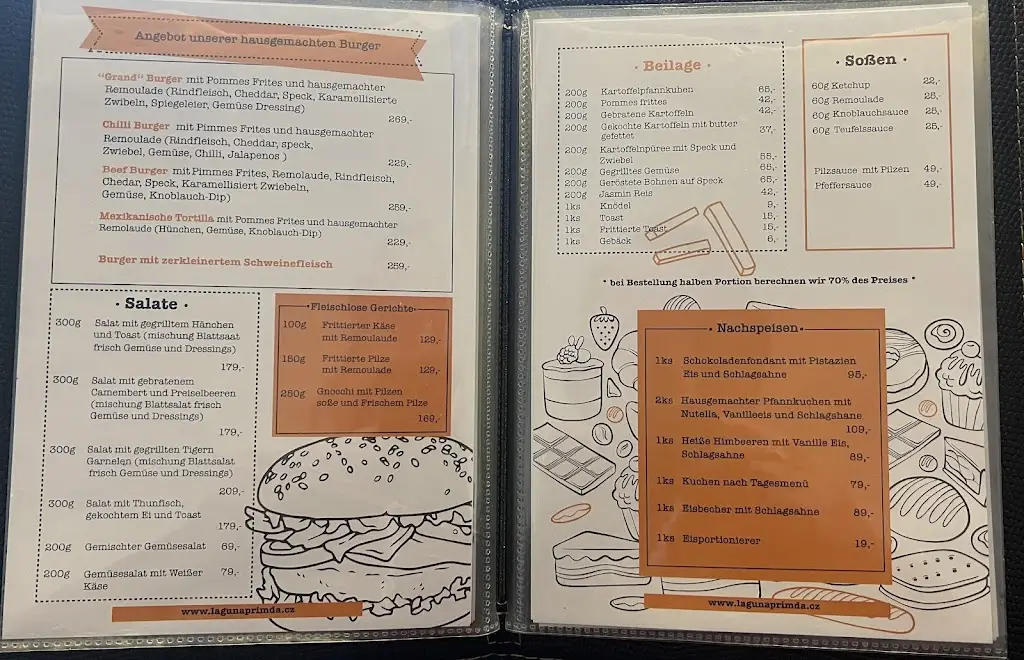 Angebot unserer hausgemachten Burger
"Grand" Burger mit Pommes Frites und hausgemachter
Remoulade (Rindfleisch, Cheddar, Speck, Karamellisierte
Zwibeln, Spiegeleier, Gemüse Dressing)
269,-
Chilli Burger mit Pimmes Frites und hausgemachter
Remoulade (Rindfleisch, Cheddar, speck,
Zwiebel, Gemüse, Chilli, Jalapenos )
229,-
Beef Burger mit Pimmes Frites, Remolaude, Rindfleisch,
Chedar, Speck, Karamellisiert Zwiebeln,
Gemüse, Knoblauch-Dip)
259,-
Mexikanische Tortilla mit Pommes Frites und hausgemachter
Remolaude (Hünchen, Gemüse, Knoblauch-Dip)
229,-
Burger mit zerkleinertem Schweinefleisch 259,-
· Salate ·
300g Salat mit gegrilltem Hänchen
und Toast (mischung Blattsaat
frisch Gemüse und Dressings)
179,-
300g Salat mit gebratenem
Camembert und Preiselbeeren
(mischung Blattsalat frisch
Gemüse und Dressings)
179,-
300g Salat mit gegrillten Tigern
Garnelen (mischung Blattsalat
frisch Gemüse und Dressings)
209,-
300g Salat mit Thunfisch,
gekochtem Ei und Toast
179,-
200g Gemischter Gemüsesalat 69,-
200g Gemüsesalat mit Weißer 79,-
Käse
Fleischlose Gerichte
100g Frittierter Käse
mit Remoulaude 129,-
150g Frittierte Pilze
mit Remoulade 129,-
250g Gnocchi mit Pilzen
soße und Frischem Pilze
169,-
www.lagunaprimda.cz
· Beilage ·
200g Kartoffelpfannkuben 65,-
200g Pommes frittes 42,-
200g Gebratene Kartoffeln 42,-
200g Gekochte Kartoffeln mit butter
gefettet 37,-
200g Kartoffelnpüree mit Speck und
Zwiebel 55,-
200g Gegrilltes Gemüse 65,-
200g Geröstete Bohnen auf Speck 65,-
200g Jasmin Reis 42,-
1ks Knödel 9,-
1ks Toast 15,-
1ks Frittierte Toast 15,-
1ks Gebäck 6,-
· Soßen ·
60g Ketchup 22,-
60g Remoulade 25,-
60g Knoblauchsauce 25,-
60g Teufelssauce 25,-
Pilzsauce mit Pilzen 49,-
Pfeffersauce 49,-
* bei Bestellung halben Portion berechnen wir 70% des Preises *
· Nachspeisen ·
1ks Schokoladenfondant mit Pistazien
Eis und Schlagsahne 95,-
2ks Hausgemachter Pfannkuchen mit
Nutella, Vanilleeis und Schlagshane
109,-
1ks Heiße Himbeeren mit Vanille Eis,
Schlagsahne 89,-
1ks Kuchen nach Tagesmenü 79,-
1ks Eisbecher mit Schlagsahne 89,-
1ks Eisportionierer 19,-
www.lagunaprimda.cz